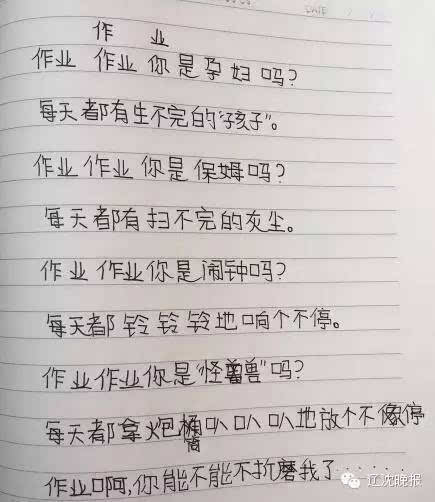 DATE
作 业
作业 作业你是孕妇吗?
每天都有生不完的“孩子”。
作业作业你是保姆吗?
每天都有扫不完的灰尘。
作业作业你是闹钟吗?
每天都铃铃铃地响个不停。
作业作业你是“怪兽”吗?
每天都拿火炮筒叭叭叭地放个不停
作业啊,你能不能不折磨我了······
辽沈晚报